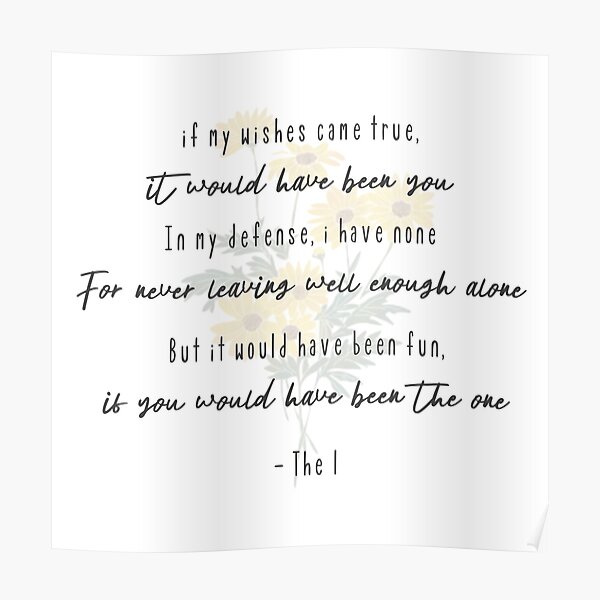 if my wishes came true,
it would have been you
In my defense, i have none
For never leaving well enough alone
But it would have been fun,
if you would have been the one
- The 1